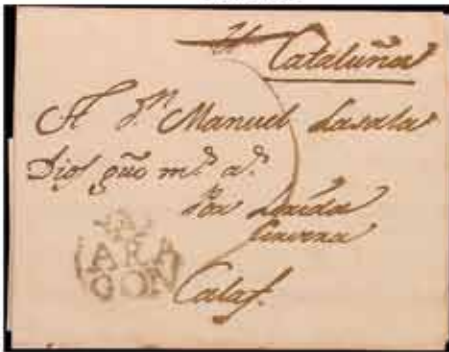 Cataluña
A Dn Manuel Lasala
Dios gũo ms as
Por Lerida
Cervera
ARA
GON
Calaf.